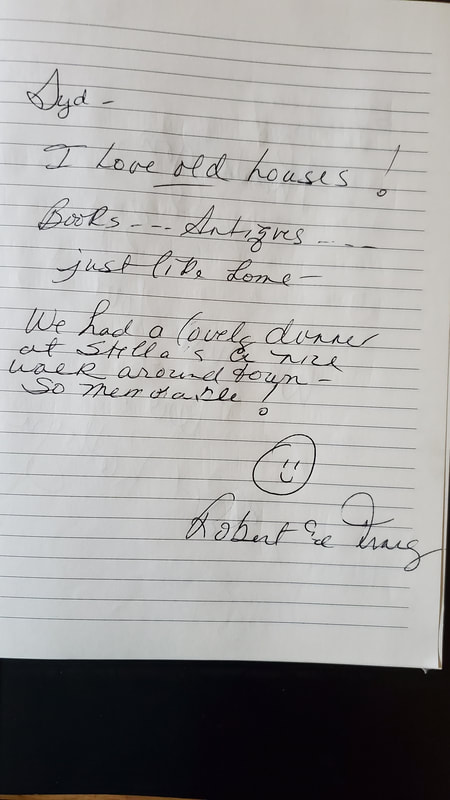 Syd -
I love old houses!
Books --- Antiques ----
just like home -
We had a lovely dinner
at Stella's & nice
walk around town -
So memorable!
Robert &